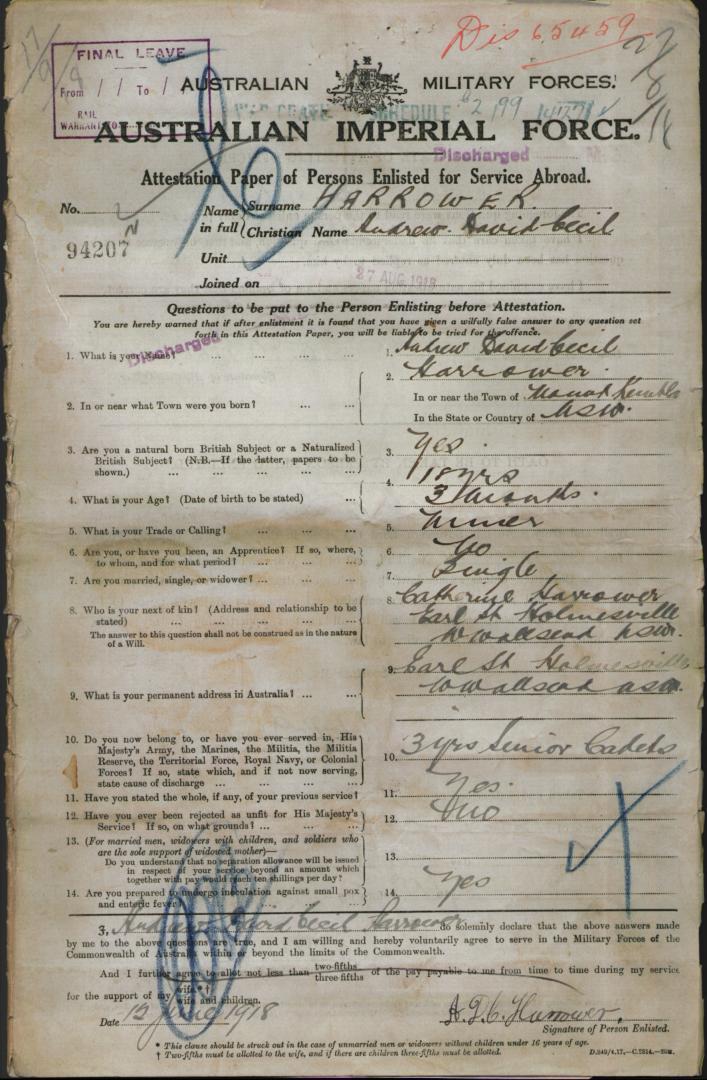 Dis 65459
17/9/18
27/8/18
FINAL LEAVE
From / / To / /
RAIL
WARRANT TO
AUSTRALIAN MILITARY FORCES.
SCHEDULE 62/99
AUSTRALIAN IMPERIAL FORCE.
Discharged
Attestation Paper of Persons Enlisted for Service Abroad.
No. 94207 N
Name in full
Surname HARROWER.
Christian Name Andrew David Cecil
Unit
Joined on
27 AUG 1918
Questions to be put to the Person Enlisting before Attestation.
You are hereby warned that if after enlistment it is found that you have given a wilfully false answer to any question set
forth in this Attestation Paper, you will be liable to be tried for the offence.
Discharged
1. What is your Name? ... ... ... 1. Andrew David Cecil
Harrower.
2. In or near what Town were you born? ... ... 2. In or near the Town of Mount Kembla
In the State or Country of NSW.
3. Are you a natural born British Subject or a Naturalized
British Subject? (N.B.—If the latter, papers to be
shown.) ... ... ... ... 3. Yes.
4. What is your Age? (Date of birth to be stated) ... 4. 18 yrs
3 months.
5. What is your Trade or Calling? ... ... ... 5. Miner
6. Are you, or have you been, an Apprentice? If so, where,
to whom, and for what period? ... ... ... 6. No
7. Are you married, single, or widower? ... ... ... 7. Single
8. Who is your next of kin? (Address and relationship to be
stated) ... ... ... ...
The answer to this question shall not be construed as in the nature
of a Will.
8. Catherine Harrower
Earl St Holmesville
W Wallsend NSW.
9. What is your permanent address in Australia? ... ... 9. Earl St Holmesville
W Wallsend NSW.
10. Do you now belong to, or have you ever served in, His
Majesty's Army, the Marines, the Militia, the Militia
Reserve, the Territorial Force, Royal Navy, or Colonial
Forces? If so, state which, and if not now serving,
state cause of discharge ... ... ... 10. 3 yrs Senior Cadets
11. Have you stated the whole, if any, of your previous service? 11. Yes.
12. Have you ever been rejected as unfit for His Majesty's
Service? If so, on what grounds? ... ... ... 12. No
13. (For married men, widowers with children, and soldiers who
are the sole support of widowed mother)—
Do you understand that no separation allowance will be issued
in respect of your service beyond an amount which
together with pay would reach ten shillings per day? 13.
14. Are you prepared to undergo inoculation against small pox
and enteric fever? 14. Yes
I, Andrew David Cecil Harrower do solemnly declare that the above answers made
by me to the above questions are true, and I am willing and hereby voluntarily agree to serve in the Military Forces of the
Commonwealth of Australia within or beyond the limits of the Commonwealth.
And I further agree to allot not less than two-fifths three-fifths of the pay payable to me from time to time during my service
for the support of my wife*† wife and children.
Date 12 June 1918
A. D. C. Harrower.
Signature of Person Enlisted.
* This clause should be struck out in the case of unmarried men or widowers without children under 16 years of age.
† Two-fifths must be allotted to the wife, and if there are children three-fifths must be allotted.